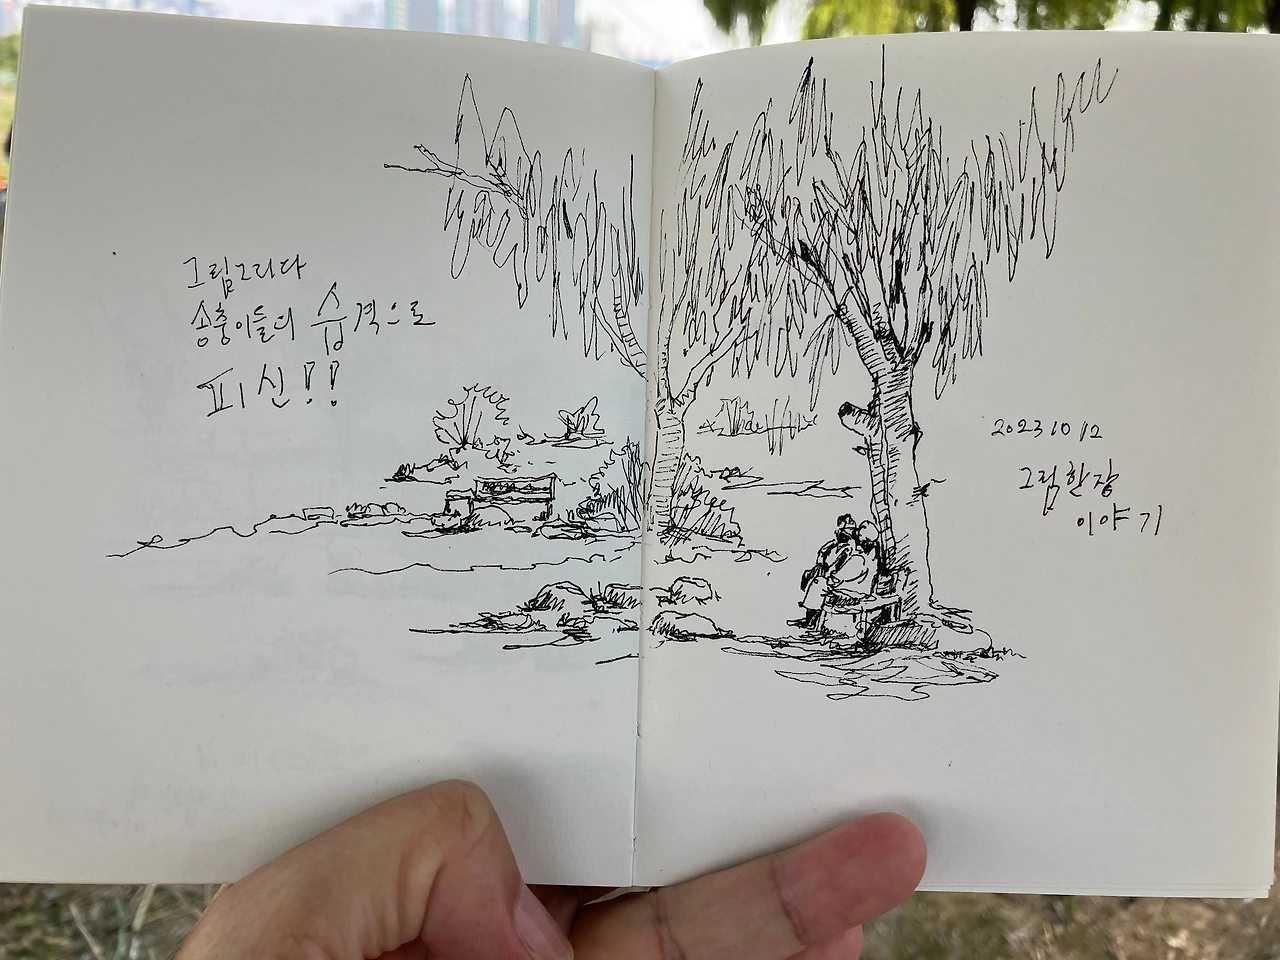 그림그리다
송충이들의 습격으로
피신!!
2023 10 12
그림한장
이야기